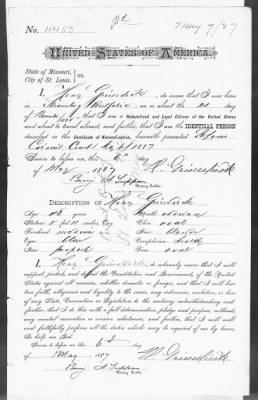 No. 11453
May 7/87
UNITED STATES OF AMERICA.
State of Missouri,
City of St. Louis, } ss.
I, Henry Griesedieck, do swear that I was born
in Westphalia, on or about the 2d
day of , that I am a Naturalized and Loyal Citizen of the United States
and about to travel abroad, and further, that I am the IDENTICAL PERSON
described in the Certificate of Naturalization, herewith presented St Louis
Circuit Court
Sworn to before me, this 6th day
of May 1887
H. Griesedieck
Notary Public.
DESCRIPTION OF Henry Griesedieck
Age Mouth medium
Stature 5 feet 11 Face oval
Forehead medium Hair
Eyes blue Complexion healthy
Nose proport
I, Henry Griesedieck, do solemnly swear that I will
support, protect, and defend the Constitution and Government, of the United
States against all enemies, whether domestic or foreign, and that I will bear
true faith, allegiance and loyalty to the same, any ordinance, resolution, or law
of any State, Convention or Legislature to the contrary notwithstanding; and
further, that I do this with a full determination, pledge and purpose, without
any mental reservation or evasion whatsoever, and further, that I will well
and faithfully perform all the duties which may be required of me by law.
So help me God.
Sworn to before me this 6th day
of May 1887
H. Griesedieck
Notary Public.